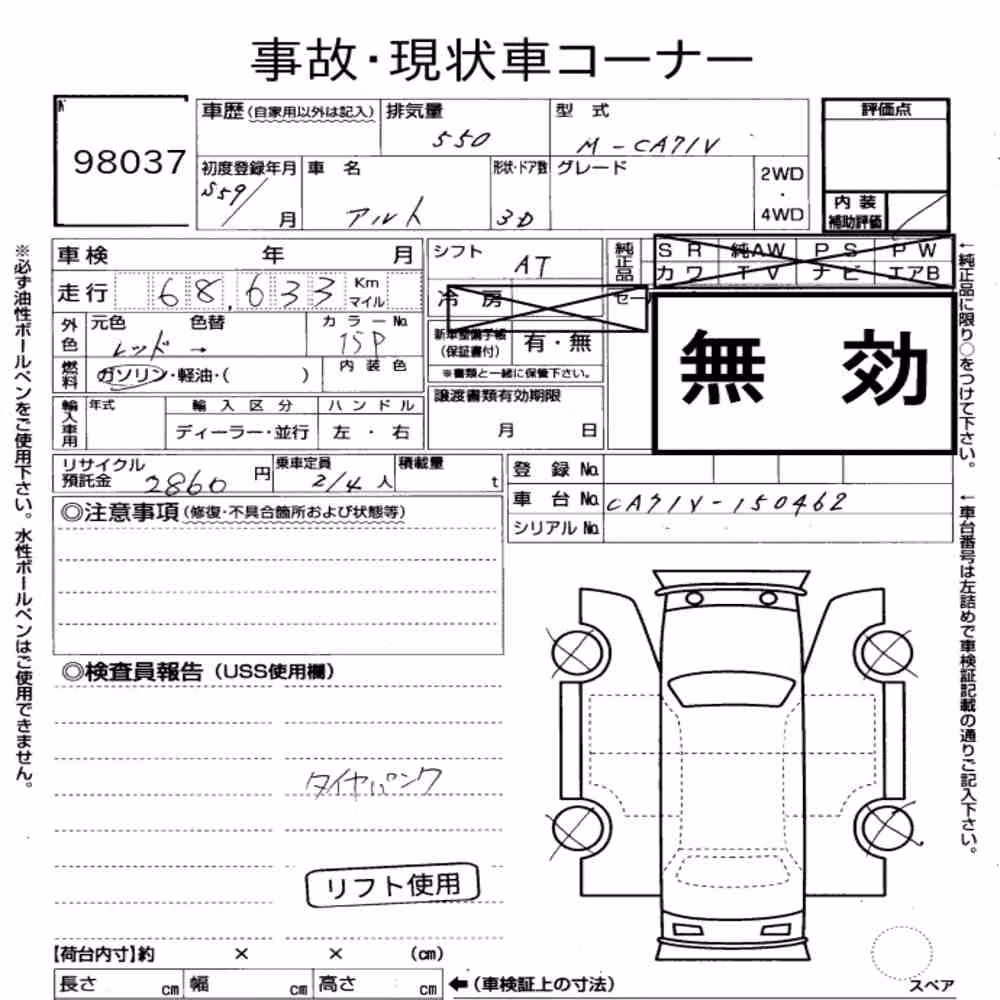 事故・現状車コーナー
98037
車歴 (自家用以外は記入)
排気量
550
型 式
M-CA71V
評価点
初度登録年月
S59/
月
車 名
アルト
形状・ドア数
3D
グレード
2WD
・
4WD
内 装
補助評価
車検 年 月
走行 68,633 Km マイル
シフト
AT
純正品
SR 純AW PS PW
カワ TV ナビ エアB
冷 房
セー
無 効
外色
元色 色替
レッド →
カラーNo.
15P
内装色
燃料
ガソリン・軽油・( )
新車整備手帳
(保証書付)
有・無
※書類と一緒に保管下さい。
輸入車用
年式
輸入区分
ディーラー・並行
ハンドル
左 ・ 右
譲渡書類有効期限
月 日
リサイクル
預託金
2860 円
乗車定員
2/4 人
積載量
t
登 録 No.
車 台 No. CA71V-150462
シリアル No.
◎注意事項 (修復・不具合箇所および状態等)
◎検査員報告 (USS使用欄)
タイヤパンク
リフト使用
【荷台内寸】約 × × (cm)
長さ cm 幅 cm 高さ cm
←(車検証上の寸法)
スペア
※必ず油性ボールペンをご使用下さい。水性ボールペンはご使用できません。
←純正品に限り○をつけて下さい。
←車台番号は左詰めで車検証記載の通りご記入下さい。